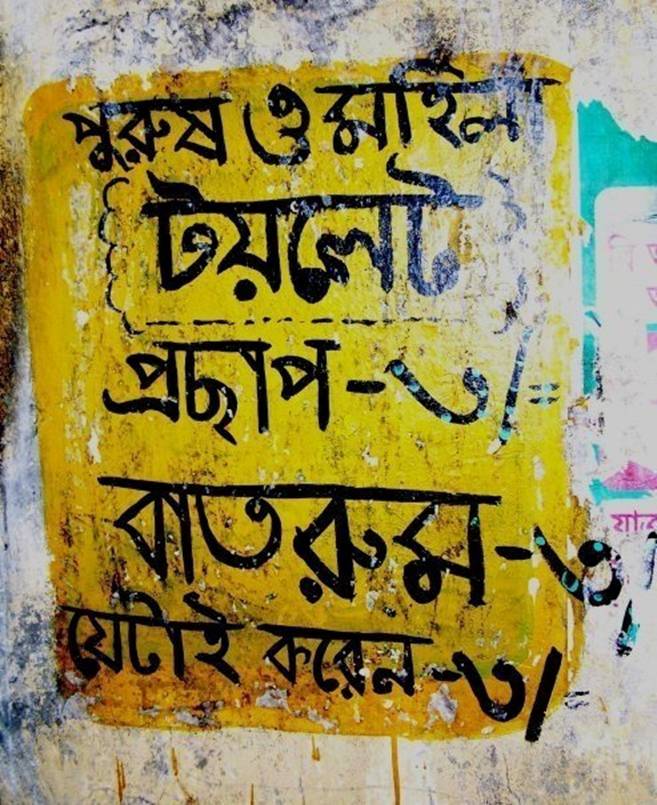 পুরুষ ও মহিলা
টয়লেট
প্রছাপ - ৩/=
বাতরুম - ৩/
যেটাই করেন - ৩/=